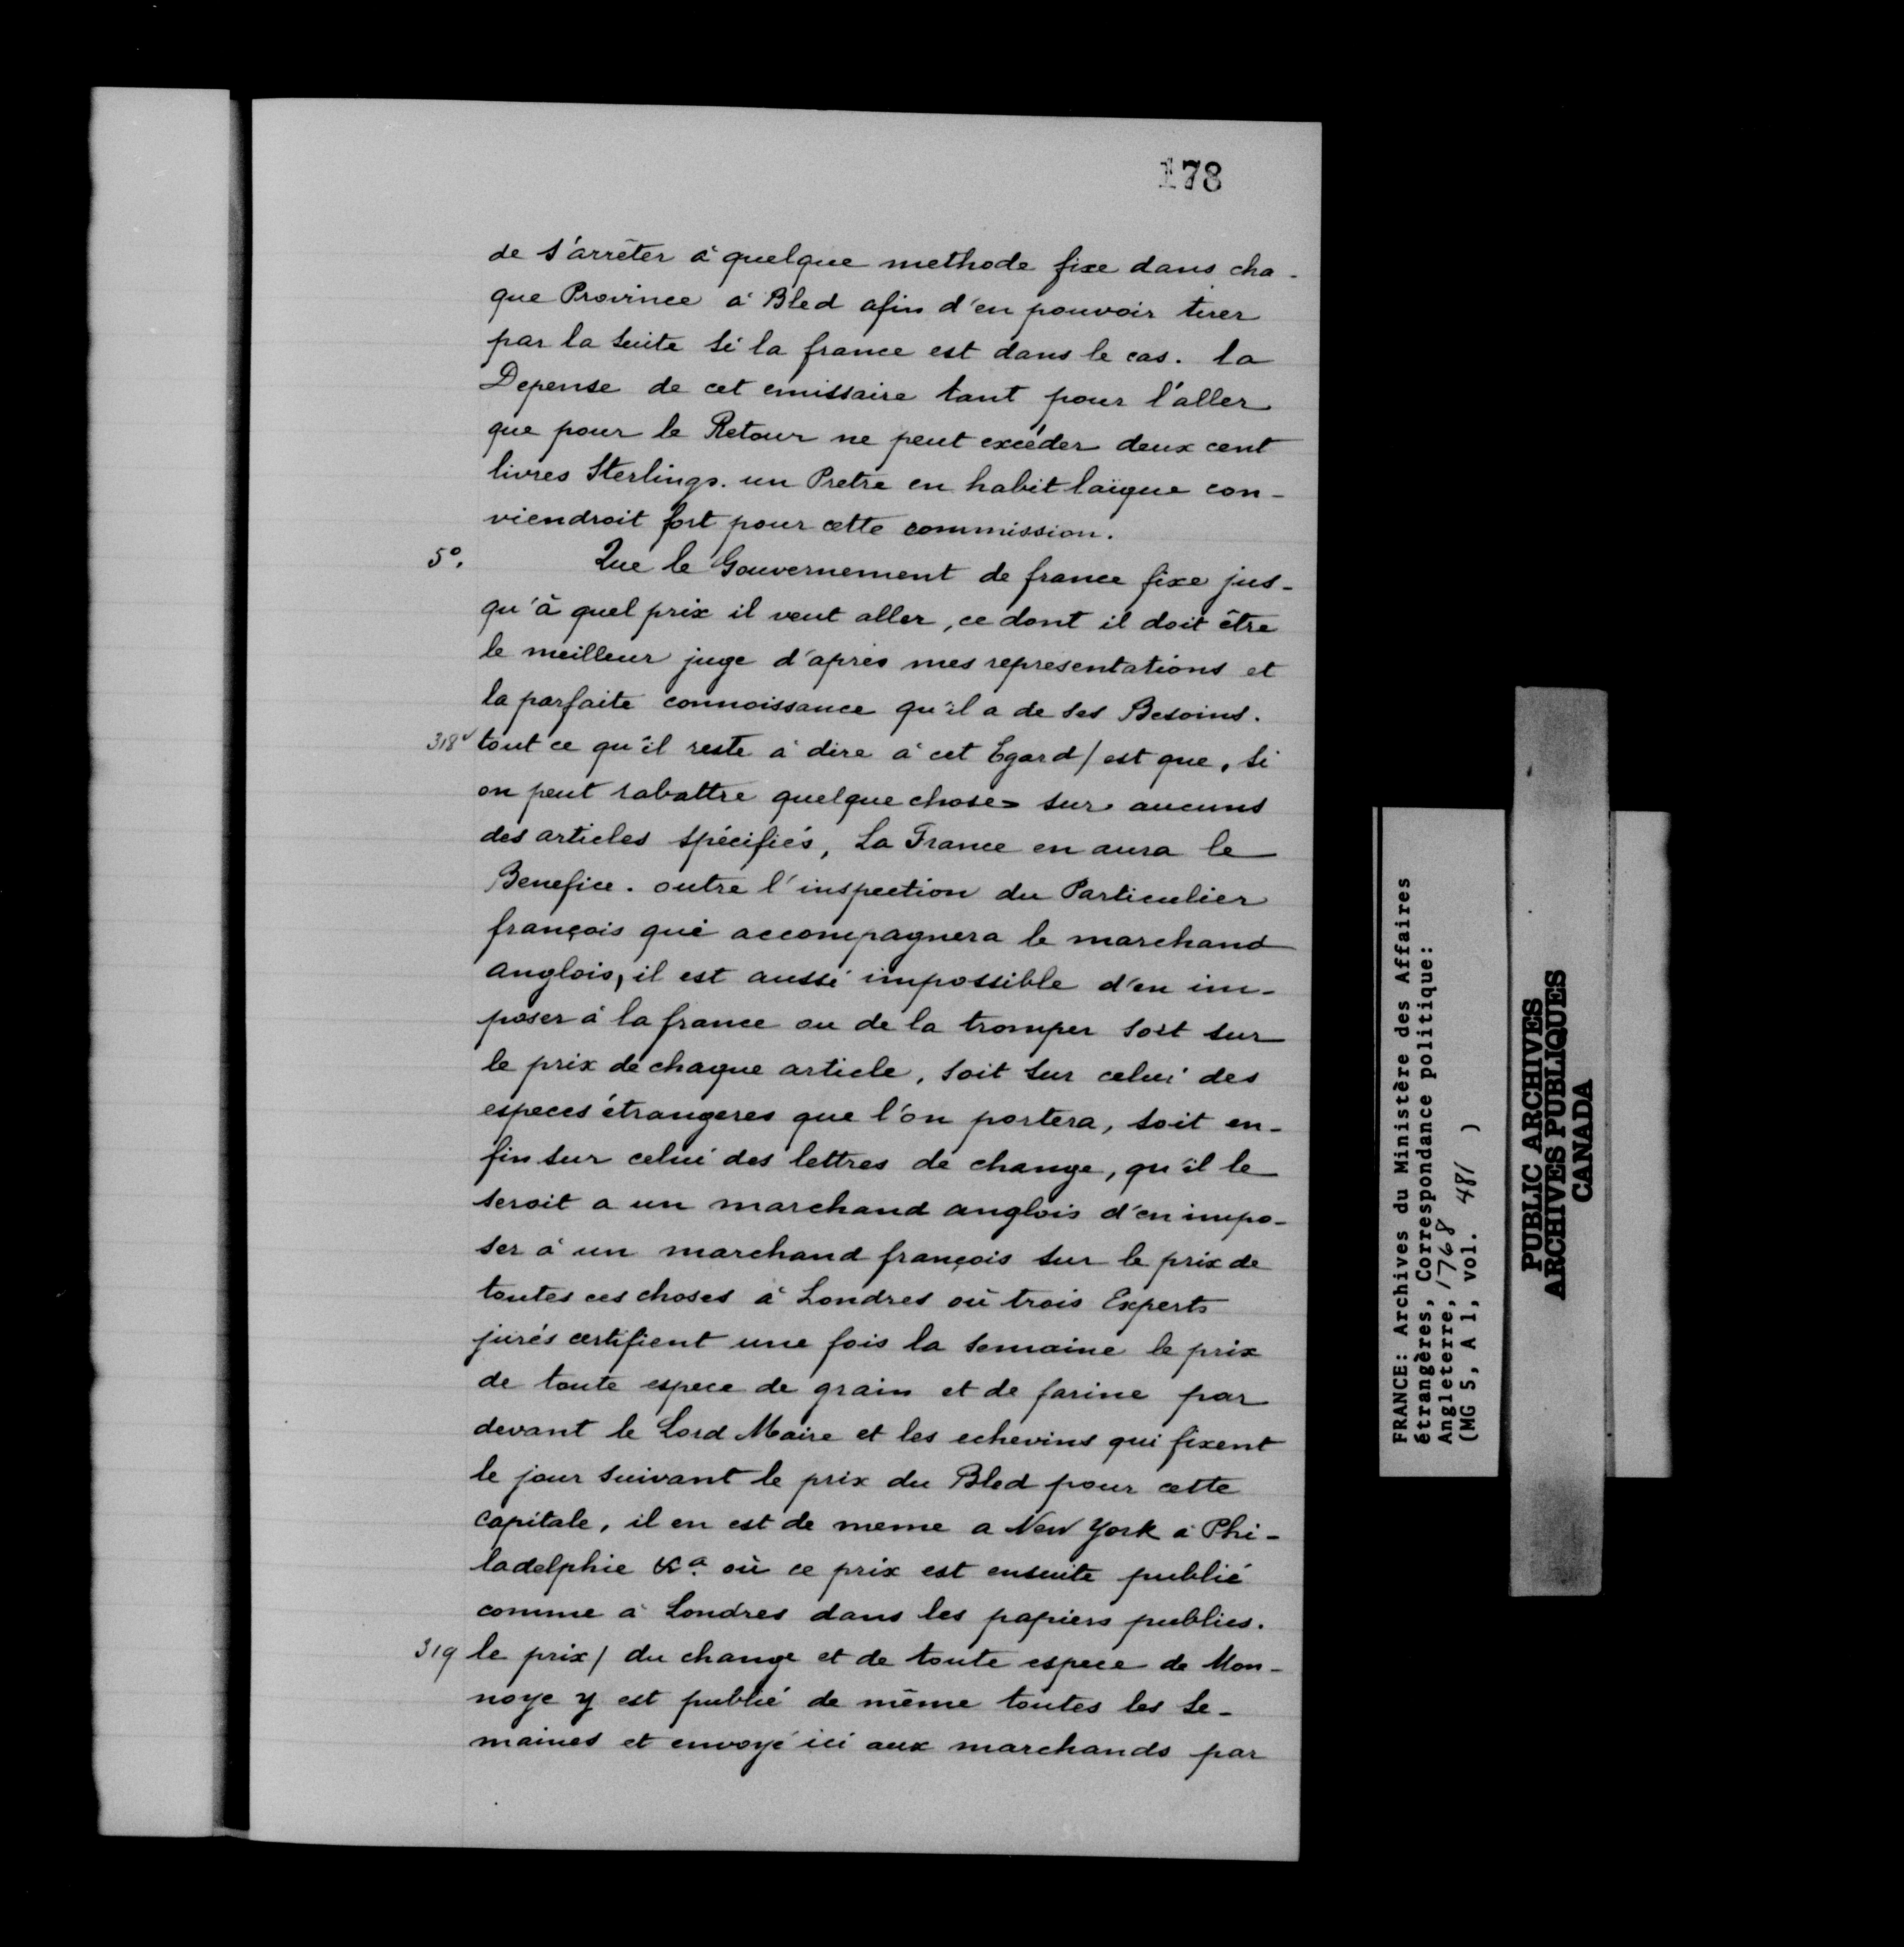 178
de s'arrêter à quelque methode fixe dans cha-
que Province à Bled afin d'en pouvoir tirer
par la suite si la france est dans le cas. la
Depense de cet emissaire tant pour l'aller
que pour le Retour ne peut excéder deux cent
livres Sterlings. un Pretre en habit laïque con-
viendroit fort pour cette commission.
5º. Que le Gouvernement de france fixe jus-
qu'à quel prix il veut aller, ce dont il doit être
le meilleur juge d'après mes representations et
la parfaite connoissance qu'il a de ses Besoins.
318v tout ce qu'il reste à dire à cet Egard / est que, si
on peut rabattre quelque chose sur aucuns
des articles spécifiés, La France en aura le
Benefice. outre l'inspection du Particulier
françois qui accompagnera le marchand
anglois, il est aussi impossible d'en im-
poser à la france ou de la tromper soit sur
le prix de chaque article, soit sur celui des
especes étrangeres que l'on portera, soit en-
fin sur celui des lettres de change, qu'il le
seroit a un marchand anglois d'en impo-
ser à un marchand françois sur le prix de
toutes ces choses à Londres où trois Experts
jurés certifient une fois la semaine le prix
de toute espece de grain et de farine par
devant le Lord Maire et les echevins qui fixent
le jour suivant le prix du Bled pour cette
capitale, il en est de meme a New York à Phi-
ladelphie &a. où ce prix est ensuite publié
comme à Londres dans les papiers publics.
319 le prix / du change et de toute espece de Mon-
noye y est publié de même toutes les se-
maines et envoyé ici aux marchands par
FRANCE: Archives du Ministère des Affaires
étrangères, Correspondance politique:
Angleterre, 1768
(MG 5, A 1, vol. 481 )
PUBLIC ARCHIVES
ARCHIVES PUBLIQUES
CANADA